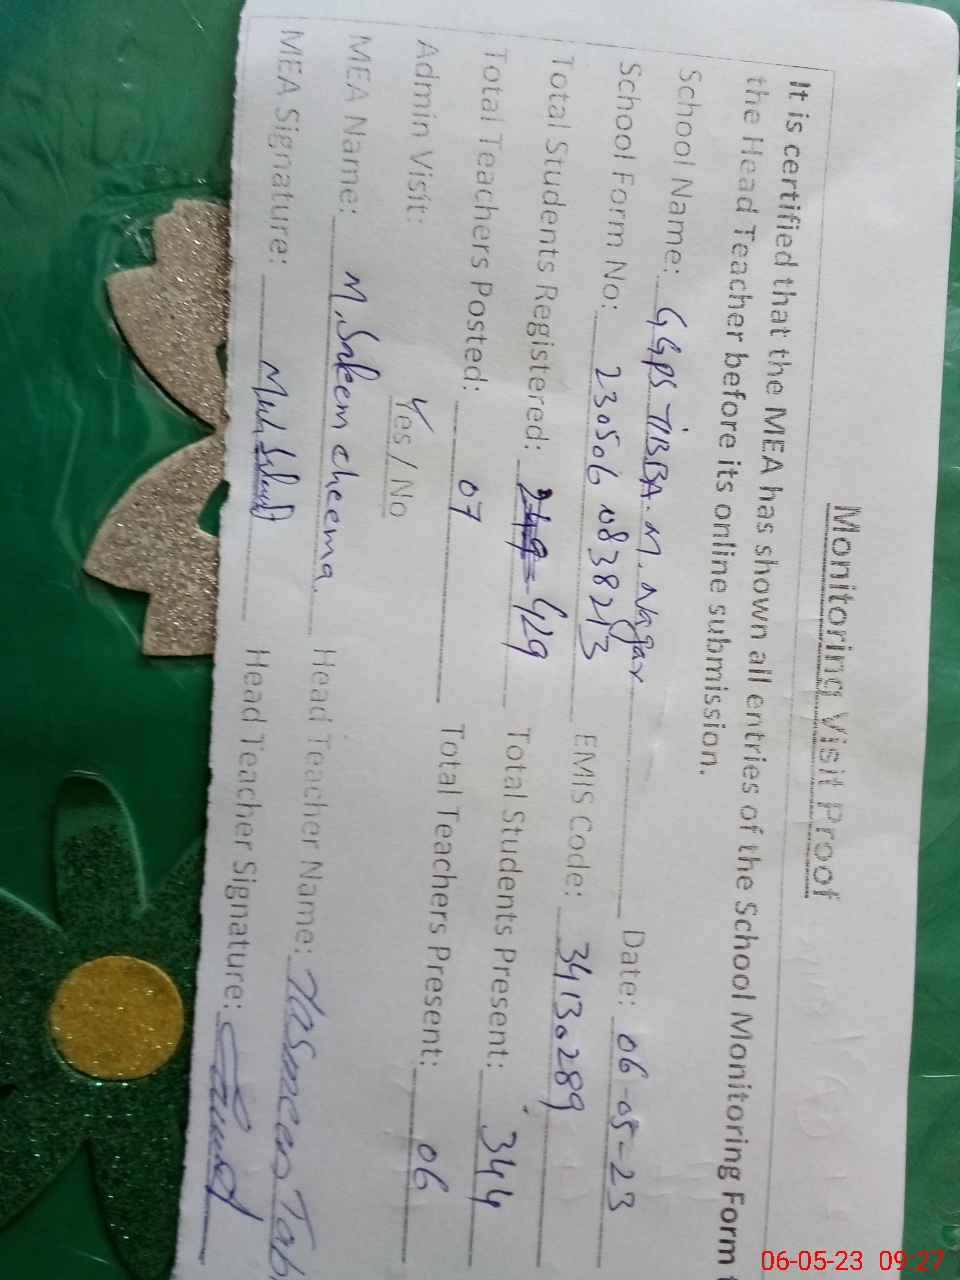 Monitoring Visit Proof
It is certified that the MEA has shown all entries of the School Monitoring Form
the Head Teacher before its online submission.
School Name: GGPS TIBBA. M. Nagar Date: 06-05-23
School Form No: 2305060838213 EMIS Code: 34130289
Total Students Registered: 249 429 Total Students Present: 344
Total Teachers Posted: 07 Total Teachers Present: 06
Admin Visit: Yes / No
MEA Name: M. Saleem cheema. Head Teacher Name: Tasmeen Tab
MEA Signature: Head Teacher Signature:
06-05-23 09:27